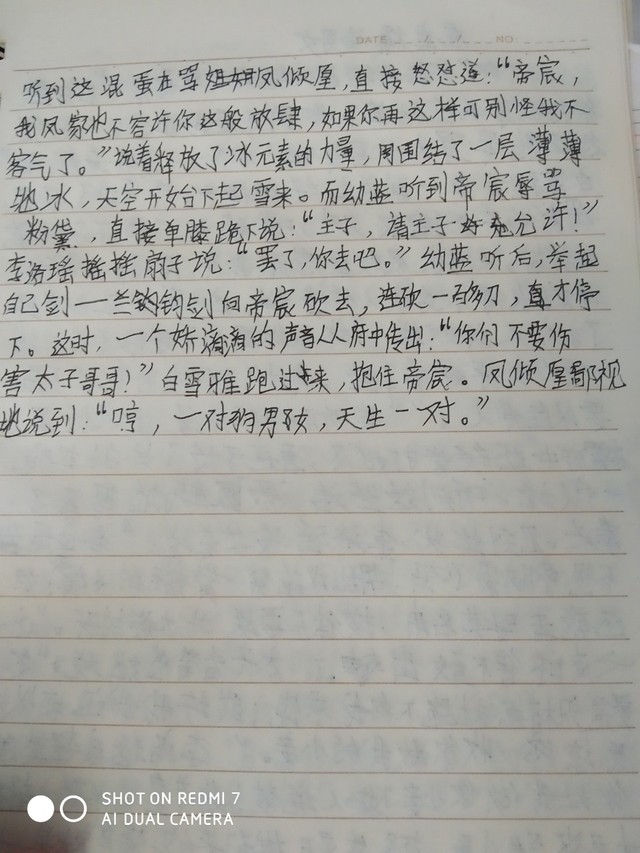 DATE / / NO
听到这混蛋在骂姐姐凤倾凰,直接怒怼道:“帝宸,
我凤家也不容许你这般放肆,如果你再这样可别怪我不
客气了。”说着释放了冰元素的力量,周围结了一层薄薄
地冰,天空开始下起雪来。而幼蓝听到帝宸辱骂
粉黛,直接单膝跪下说:“主子,请主子允许!”
李洛瑶摇摇扇子说:“罢了,你去吧。”幼蓝听后,举起
自己剑一兰钩钩剑向帝宸砍去,连砍一百多刀,直才停
下。这时,一个娇滴滴的声音从府中传出:“你们不要伤
害太子哥哥!”白雪雅跑过来,抱住帝宸。凤倾凰鄙视
地说到:“哼,一对狗男女,天生一对。”
SHOT ON REDMI 7
AI DUAL CAMERA